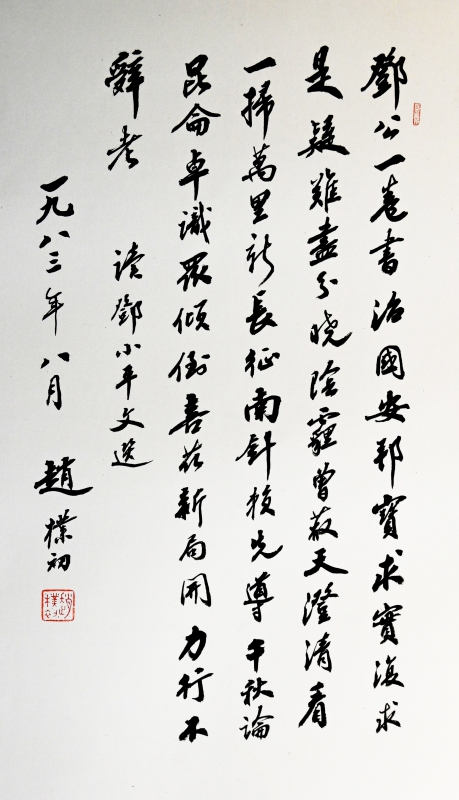 鄧公一卷書治國安邦寶求實復求
是疑難盡分曉陰霾曾蔽天澄清看
一掃萬里新長征南針先導千秋論
昆侖卓識眾傾倒喜茲新局開力行不
辭老
读鄧小平文選
一九八三年八月
趙樸初